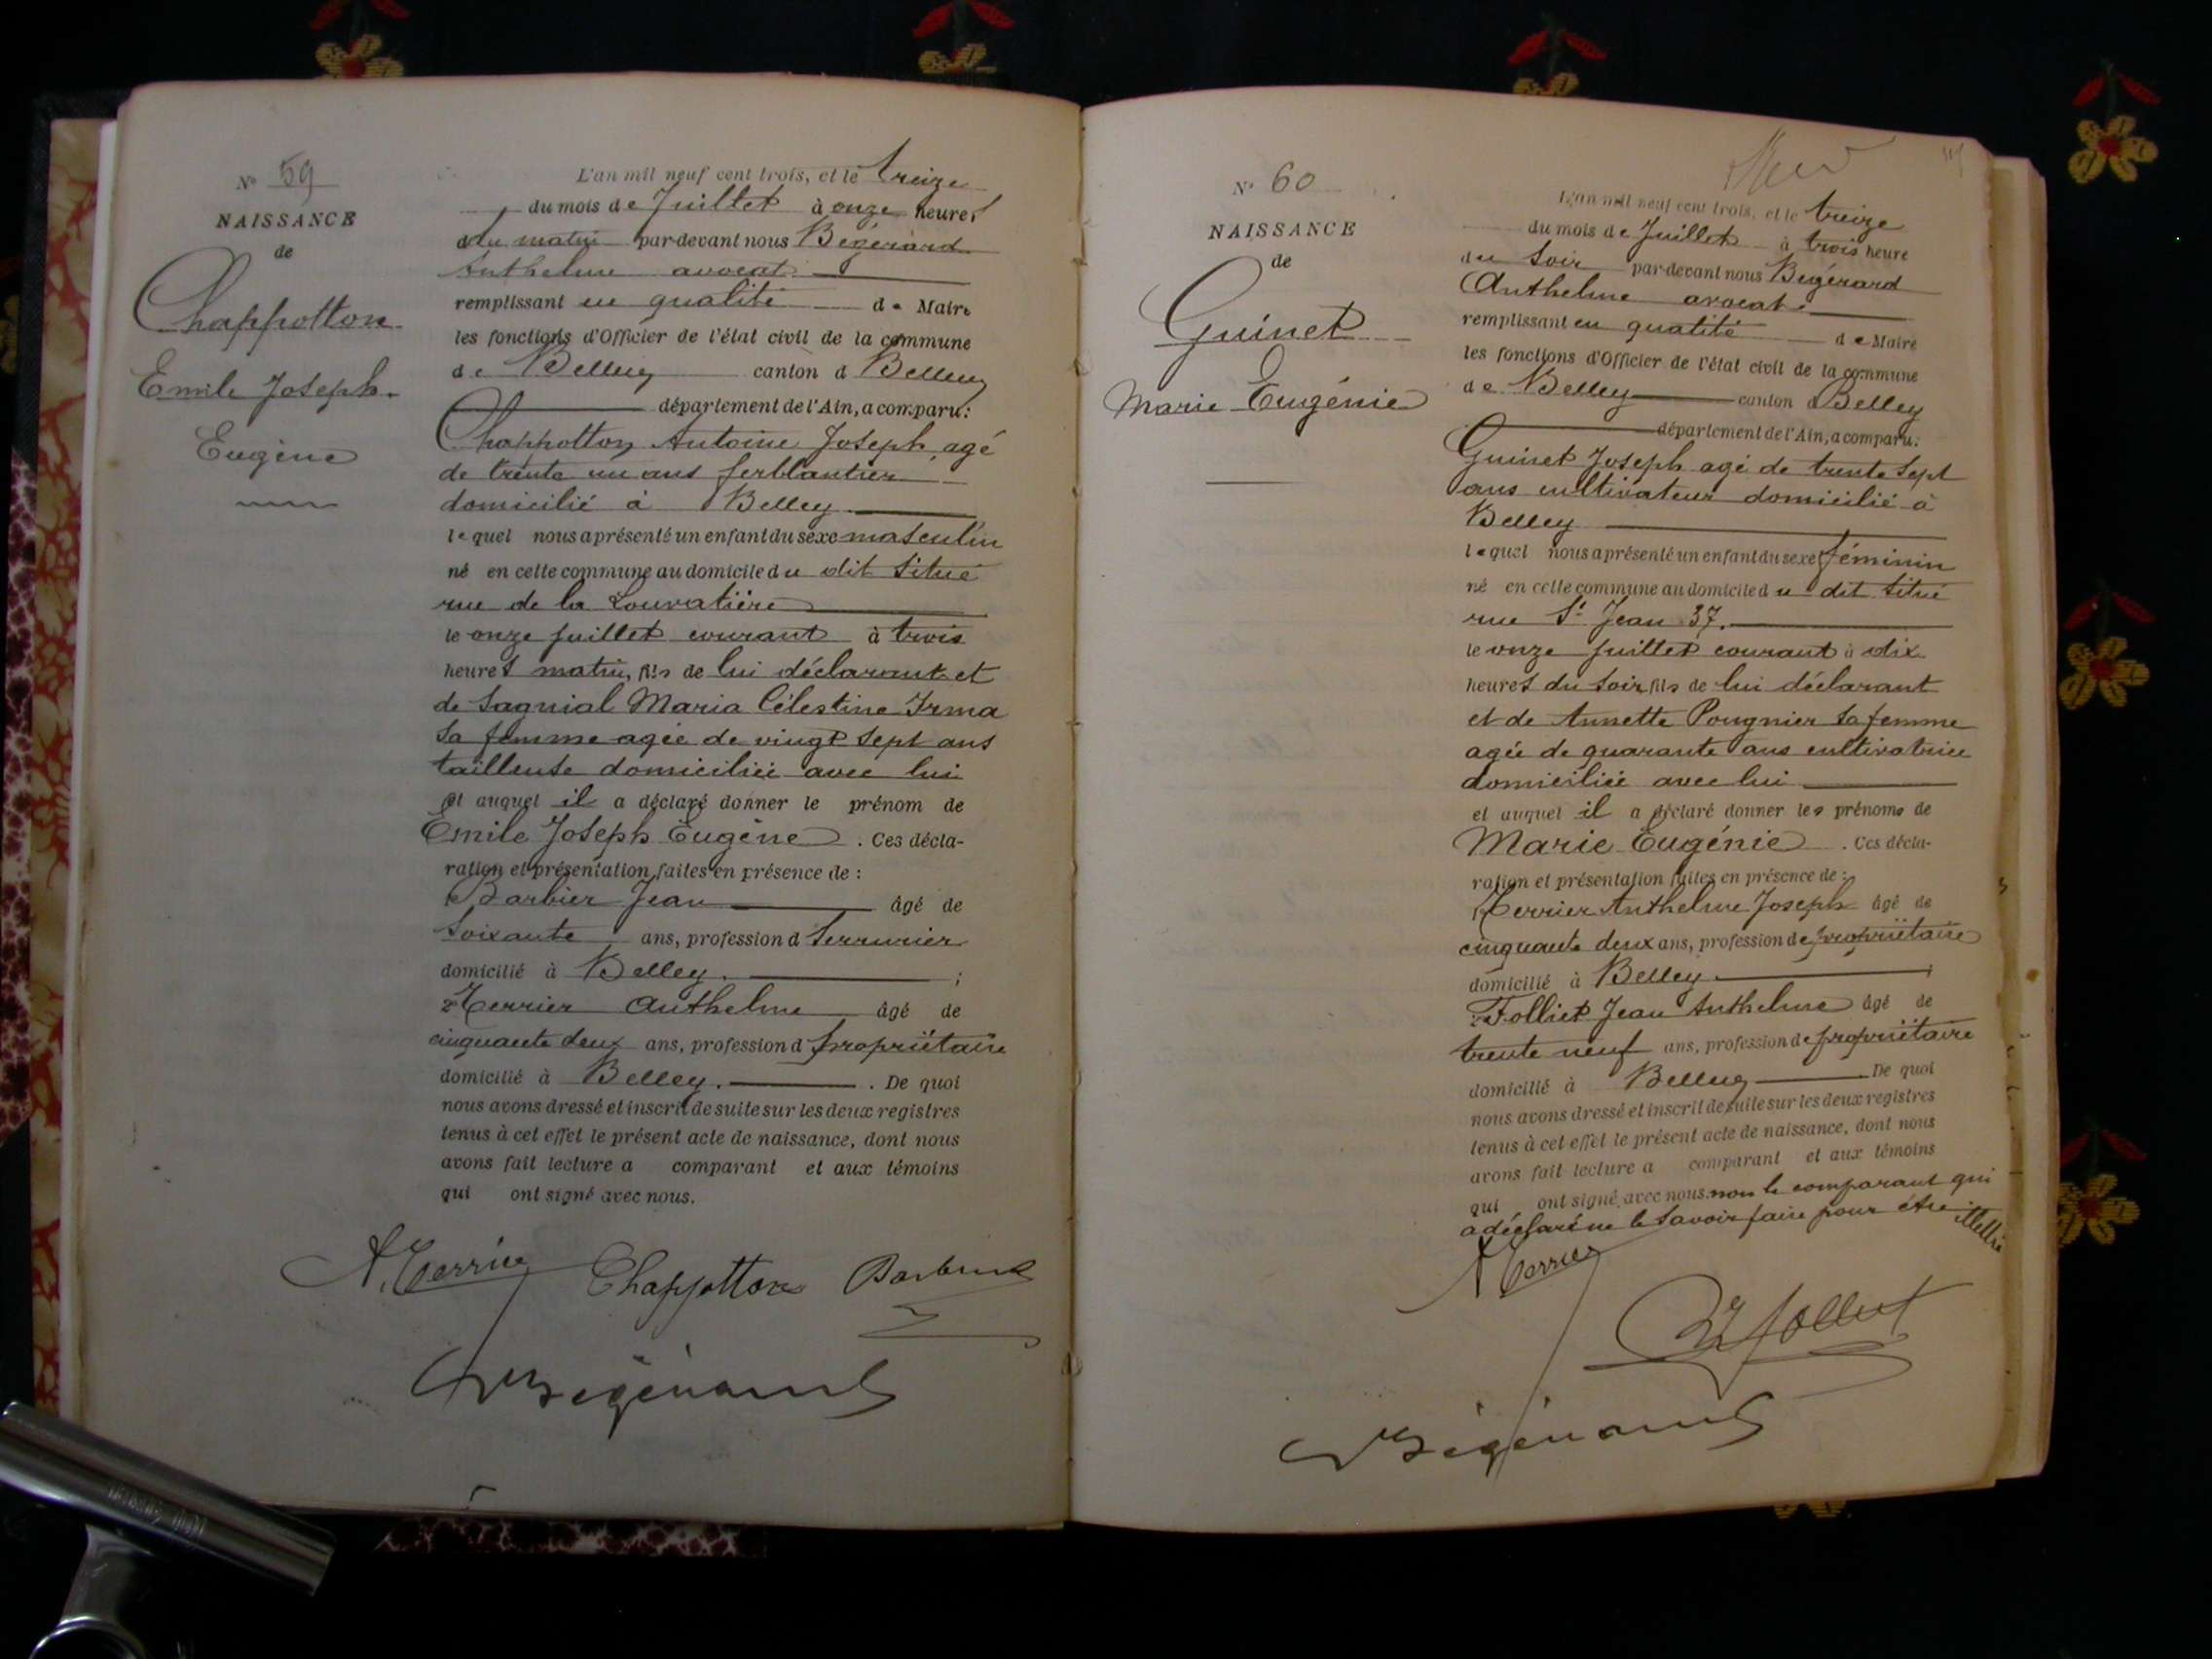 N° 59
NAISSANCE
de
Chappotton
Emile Joseph.
Eugène
L'an mil neuf cent trois, et le treize
du mois de Juillet à onze heures
du matin par-devant nous Bégérard
Anthelme avocat
remplissant en qualité de Maire
les fonctions d'Officier de l'état civil de la commune
de Belley canton d Belley
département de l'Ain, a comparu:
Chappotton Antoine Joseph, agé
de trente un ans ferblantier
domicilié à Belley
lequel nous a présenté un enfant du sexe masculin
né en cette commune au domicile du dit situé
rue de la Louvatière
le onze juillet courant à trois
heures matin, fils de lui déclarant et
de Sagnial Maria Célestine Irma
sa femme agée de vingt sept ans
tailleuse domiciliée avec lui
et auquel il a déclaré donner le prénom de
Emile Joseph Eugène . Ces décla-
ration et présentation faites en présence de :
1° Barbier Jean âgé de
soixante ans, profession d serrurier
domicilié à Belley. ;
2° Terrier Anthelme âgé de
cinquante deux ans, profession d propriétaire
domicilié à Belley. . De quoi
nous avons dressé et inscrit de suite sur les deux registres
tenus à cet effet le présent acte de naissance, dont nous
avons fait lecture a comparant et aux témoins
qui ont signé avec nous.
A. Terrier Chappotton Barbier
Bégérard
N° 60
NAISSANCE
de
Guinet
Marie Eugénie
L'an mil neuf cent trois, et le treize
du mois de Juillet à trois heure
du soir par-devant nous Bégérard
Anthelme avocat.
remplissant en qualité de Maire
les fonctions d'Officier de l'état civil de la commune
de Belley canton d Belley
département de l'Ain, a comparu:
Guinet Joseph agé de trente sept
ans cultivateur domicilié à
Belley
lequel nous a présenté un enfant du sexe féminin
né en cette commune au domicile du dit situé
rue St Jean 37.
le onze juillet courant à dix
heures du soir fils de lui déclarant
et de Annette Pougnier sa femme
agée de quarante ans cultivatrice
domiciliée avec lui
et auquel il a déclaré donner les prénoms de
Marie Eugénie . Ces décla-
ration et présentation faites en présence de :
1° Terrier Anthelme Joseph âgé de
cinquante deux ans, profession de propriétaire
domicilié à Belley ;
2° Folliet Jean Anthelme âgé de
trente neuf ans, profession de propriétaire
domicilié à Belley De quoi
nous avons dressé et inscrit de suite sur les deux registres
tenus à cet effet le présent acte de naissance, dont nous
avons fait lecture a comparant et aux témoins
qui ont signé avec nous. non le comparant qui
a déclaré ne le savoir faire pour être illettré
A Terrier
Folliet
Bégérard